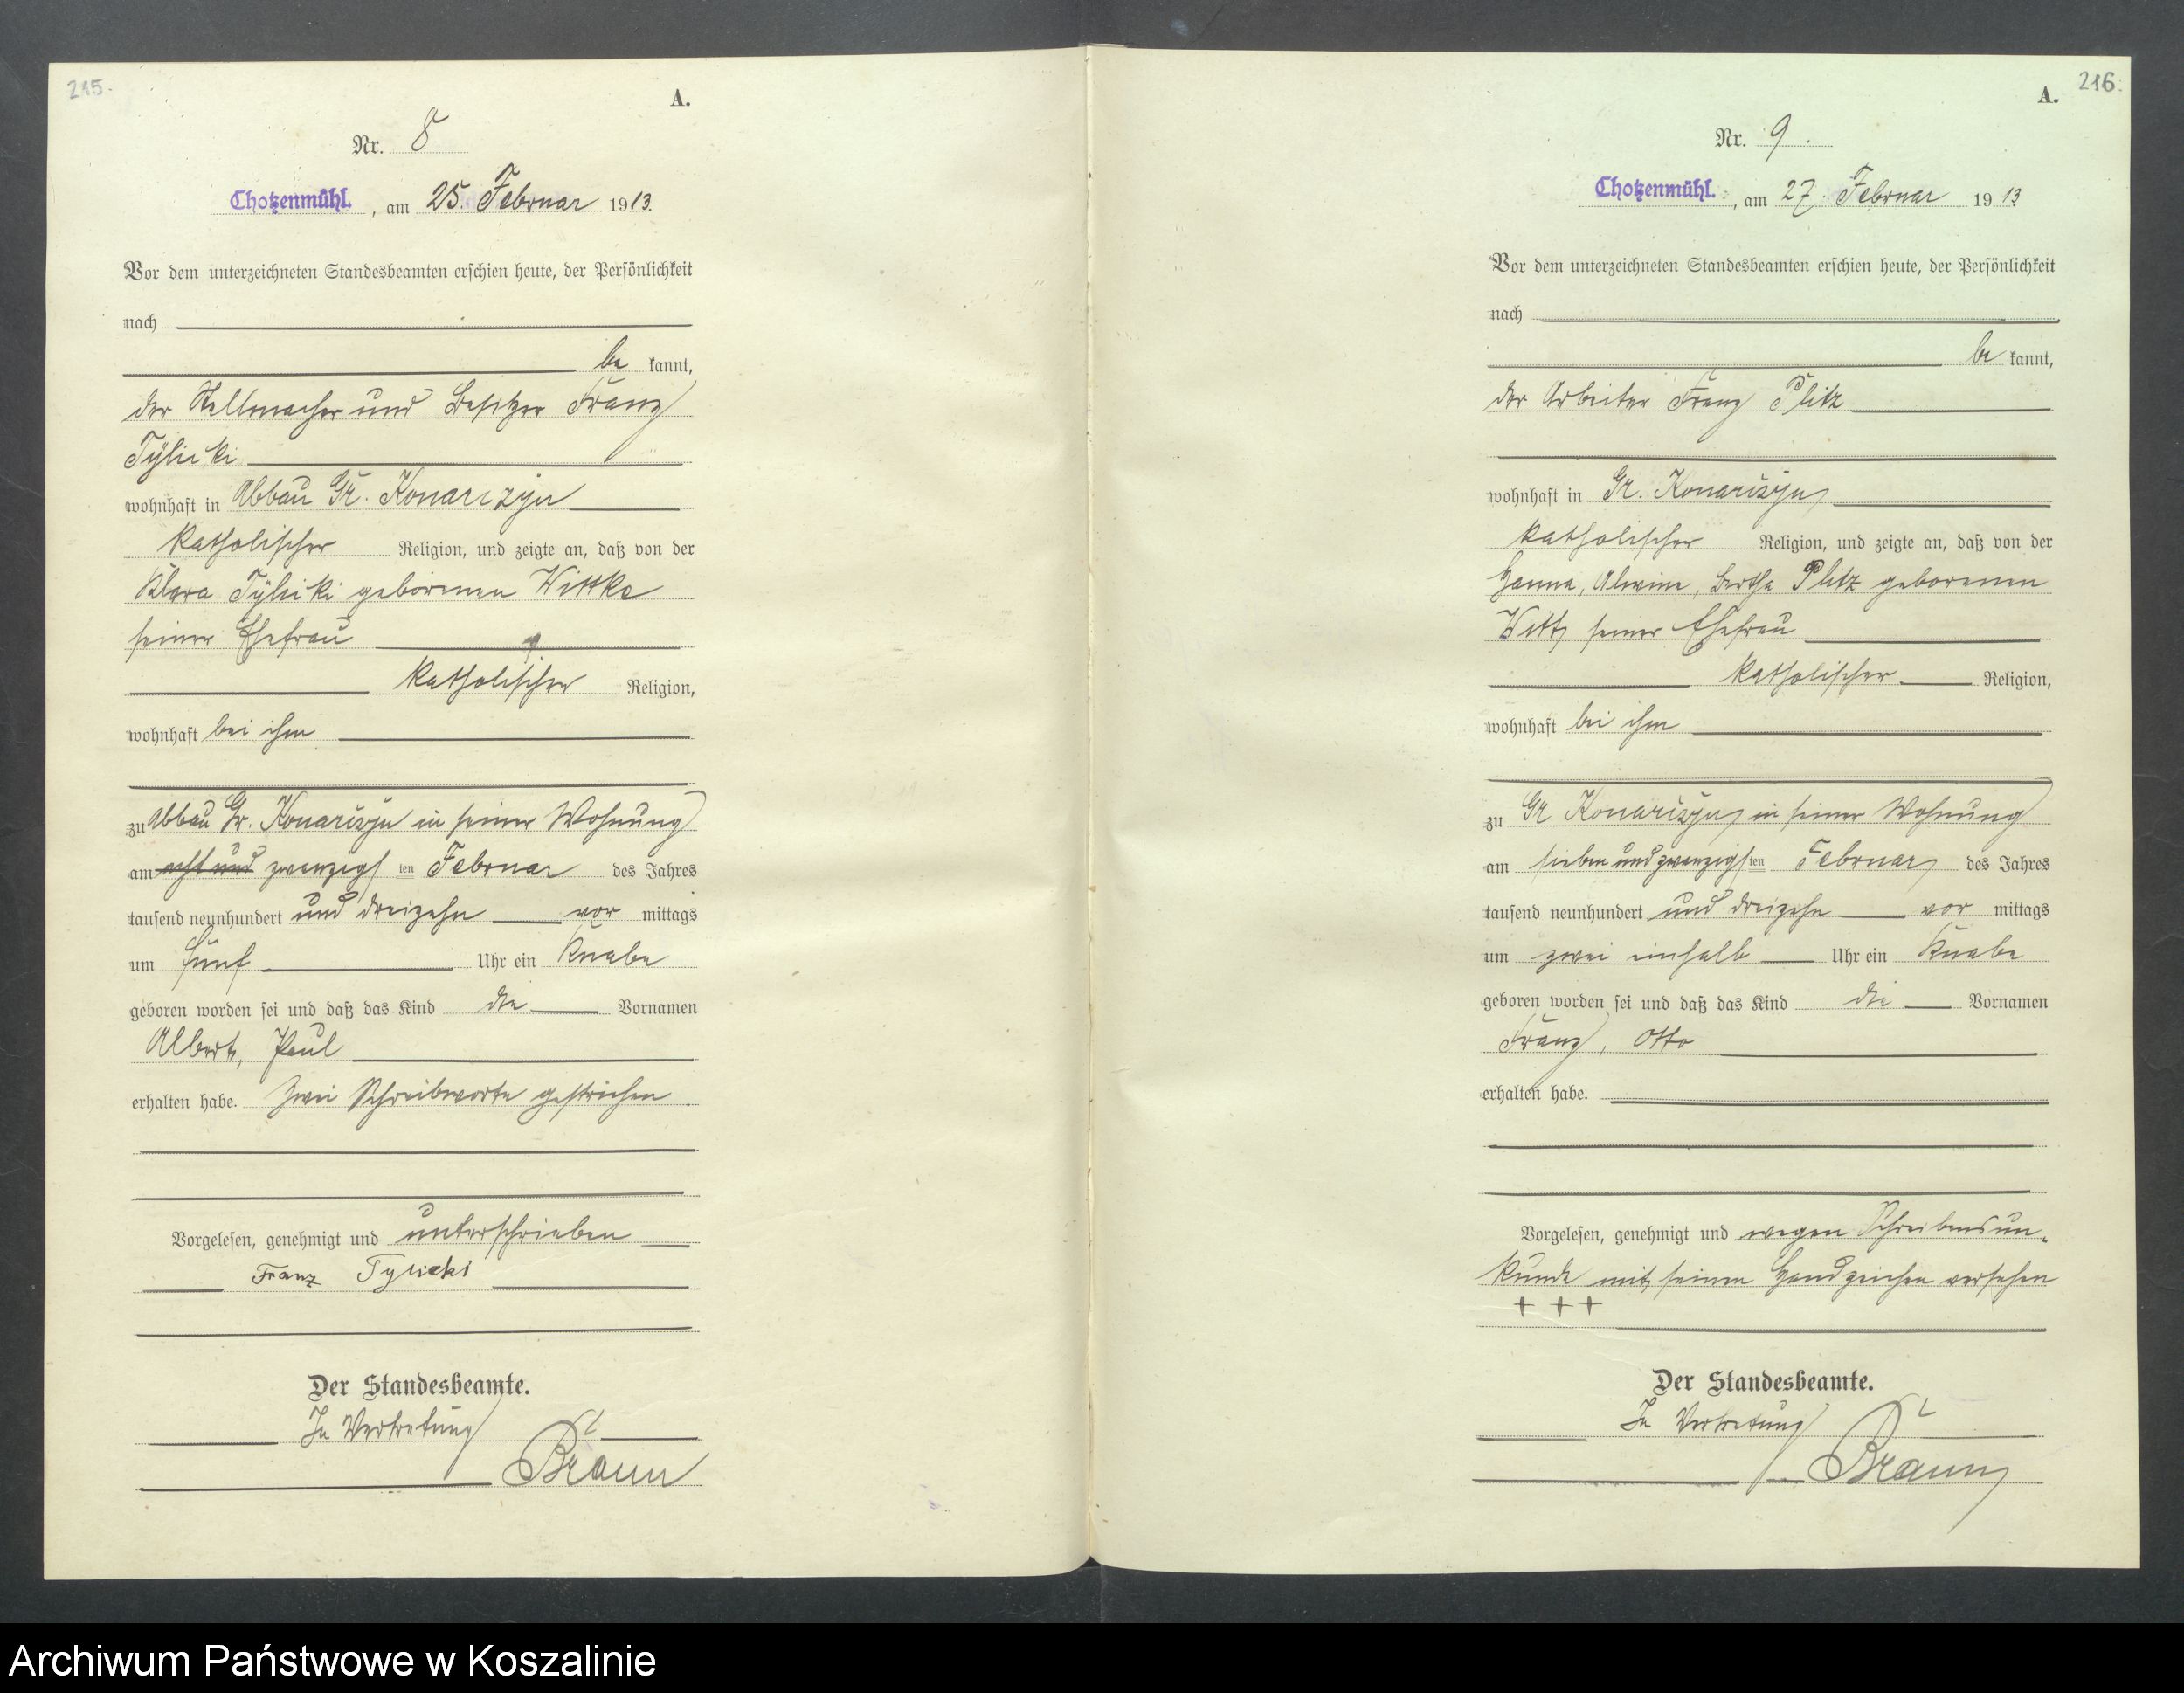 215.
A.
Nr. 8
Chotzenmühl. , am 25. Februar 1913.
Vor dem unterzeichneten Standesbeamten erschien heute, der Persönlichkeit
nach
be kannt,
der Stellmacher und Besitzer Franz
Tylicki
wohnhaft in Abbau Gr. Konarczyn
katholischer Religion, und zeigte an, daß von der
Klara Tylicki geborenen Wittke
seiner Ehefrau
katholischer Religion,
wohnhaft bei ihm
zu Abbau Gr. Konarczyn in seiner Wohnung
am acht und zwanzigsten Februar des Jahres
tausend neunhundert und dreizehn vor mittags
um fünf Uhr ein Knabe
geboren worden sei und daß das Kind die Vornamen
Albert, Paul
erhalten habe. Zwei Schreibworte gestrichen.
Vorgelesen, genehmigt und unterschrieben
Franz Tylicki
Der Standesbeamte.
In Vertretung
Braun
216.
A.
Nr. 9.
Chotzenmühl. , am 27. Februar 1913
Vor dem unterzeichneten Standesbeamten erschien heute, der Persönlichkeit
nach
be kannt,
der Arbeiter Franz Plitz
wohnhaft in Gr. Konarczyn
katholischer Religion, und zeigte an, daß von der
Hanna, Alwine, Bertha Plitz geborenen
Witt, seiner Ehefrau
katholischer Religion,
wohnhaft bei ihm
zu Gr Konarczyn in seiner Wohnung
am sieben und zwanzigsten Februar des Jahres
tausend neunhundert und dreizehn vor mittags
um zwei einhalb Uhr ein Knabe
geboren worden sei und daß das Kind die Vornamen
Franz, Otto
erhalten habe.
Vorgelesen, genehmigt und wegen Schreibensun-
kunde mit seinem Handzeichen versehen
+ + +
Der Standesbeamte.
In Vertretung
Braun
Archiwum Państwowe w Koszalinie